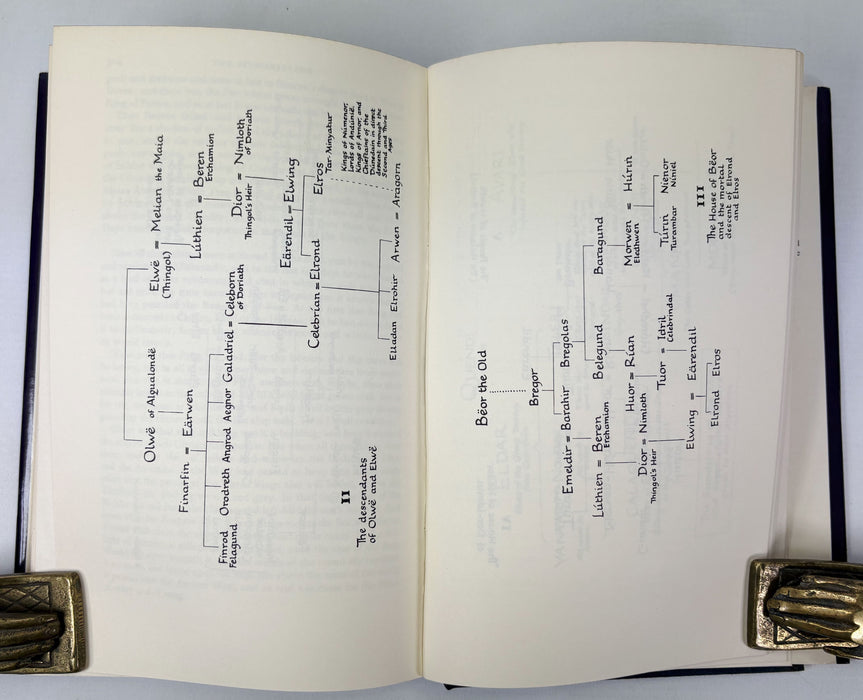 Olwë of Alqualondë
Elwë = Melian the Maia
(Thingol)
Finarfin = Eärwen
Lúthien = Beren
Erchamion
Finrod
Felagund
Orodreth
Angrod
Aegnor
Galadriel = Celeborn
of Doriath
Dior = Nimloth
Thingol's Heir
of Doriath
Eärendil = Elwing
Celebrían = Elrond
Elros
Tar-Minyatur
Kings of Númenor,
Lords of Andúnië,
Kings of Arnor, and
Chieftains of the
Dúnedain in direct
descent through the
Second and Third
Ages
Elladan
Elrohir
Arwen = Aragorn
II
The descendants
of Olwë and Elwë
Bëor the Old
Bregor
Emeldir = Barahir
Bregolas
Lúthien = Beren
Erchamion
Belegund
Baragund
Huor = Rían
Morwen = Húrin
Eledhwen
Dior = Nimloth
Thingol's Heir
Tuor = Idril
Celebrindal
Túrin
Turambar
Nienor
Níniel
Elwing = Eärendil
Elrond
Elros
III
The House of Bëor
and the mortal
descent of Elrond
and Elros